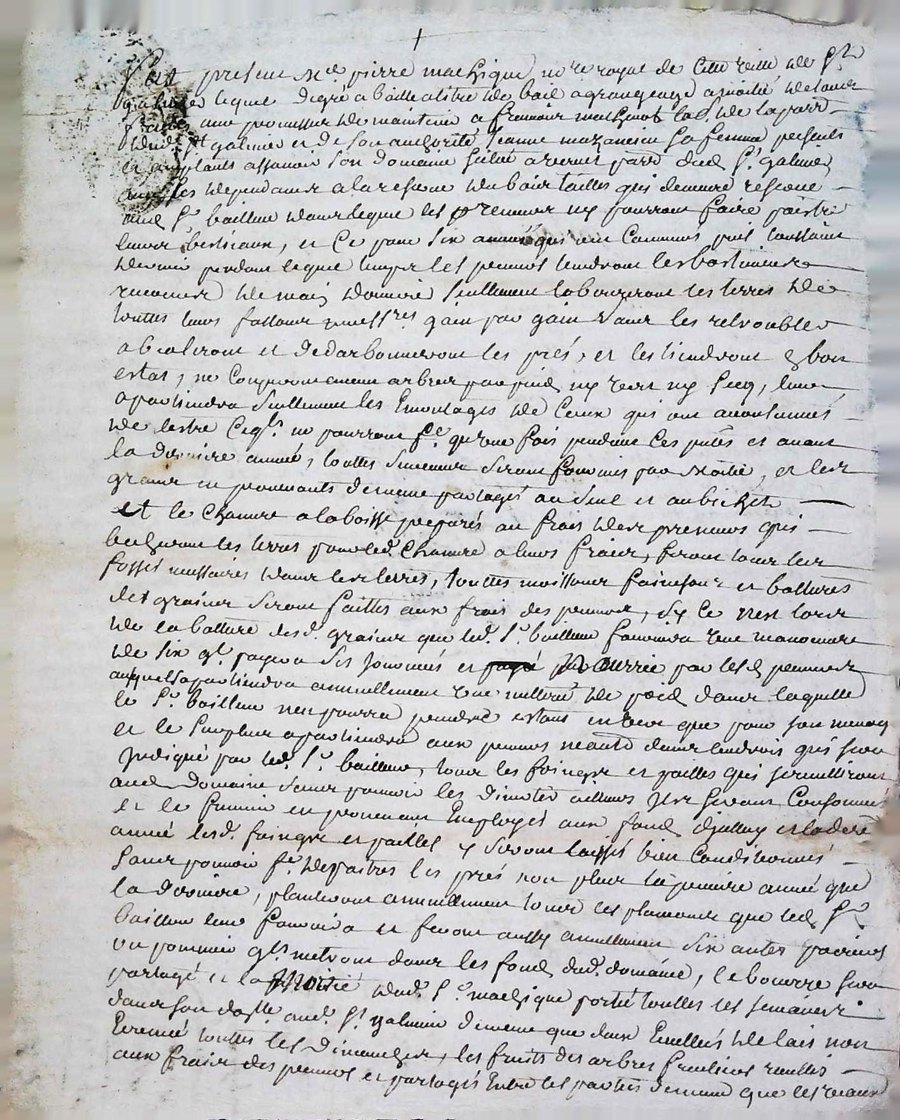 present Me pierre machique nore royal de cette ville de St
galmier lequel degré a baillé a titre de bail a grangeage a moitié de tous
fruits avec promesse de maintenir a françois
dud. St galmier et de son authorité Jeanne sa femme presents
et acceptants assavoir son domaine situé parr dud. St galmier
ses dependances a la reserve des bois tailles qui demeure reserve
aud Sr bailleur dans lequel les preneurs ny pourront faire paistre
leurs bestiaux, et ce pour six années qui ont commencé puis toussaint
dernier pendant lequel temps les preneurs tiendront les bastiments
de main d'ouvrier seullement labourzeront les terres de
touttes leurs fassons necessres gain par gain sans les retroubler
et dedarbonneront les prés, et les tiendront en bon
estat, ne couperont aucun arbres par pied ny vert ny secq, leur
apartiendra seullement les Emontages de ceux qui ont accoutumés
de lestre ceqls ne pourront fe qu'une fois pendant ces prises et avant
la derniere année, touttes semences seront fournies par moitié, et les
grains en provenants de meme partagés au sueil et au bichet
et le chanvre a la boisse preparés au frais des preneurs qui
les terres pour led. chanvre a leurs fraix, feront tous les
fossés necessaires dans les terres, touttes moissons fainesons et battures
des grains seront faittes aux frais des preneurs, si ce n'est lors
de la batture desd. grains que led. Sr bailleur fournira une manoeuvre
de six qls payera six journées et nourrie par lesd preneurs
auxquels apartiendra annuellement une de poid dans laquelle
le Sr bailleur n'en pourra prendre estant en vert que pour son menage
et le surplus apartiendra aux preneurs dans l'endroit qui sera
indiqué par led. Sr bailleur, tous les foingt et pailles qui se recuilliront
aud domaine sans pouvoir les divertir ailleurs y seront consommés
et le fumier en provenant Employé aux fond d'jcelluy et la dere
année lesd. foingt et pailles y seront laissés bien conditionnés
sans pouvoir fe depaitre les prés non plus la premiere année que
la derniere, planteront annuellement tous les plansons que led Sr
bailleur leur fournira et feront aussy annuellement six antes poiriers
ou pommiers qls metront dans les fond dud. domaine, le beurre sera
partagé et la Moitié dud. Sr machique porté touttes les semaines
dans son domlle aud. St galmier de meme que deux Ecuelles de lait non
Ecremé touttes les dimanches, les fruits des arbres fruitiers
aux fraix des preneurs et partagés Entre les parties de meme que les